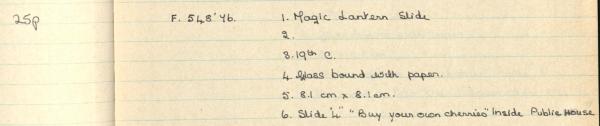 25p F. 548'46. 1. Magic Lantern Slide
2.
3. 19th C.
4. Glass bound with paper.
5. 8.1 cm x 8.1 cm.
6. Slide "4" "Buy your own cherries" Inside Public House